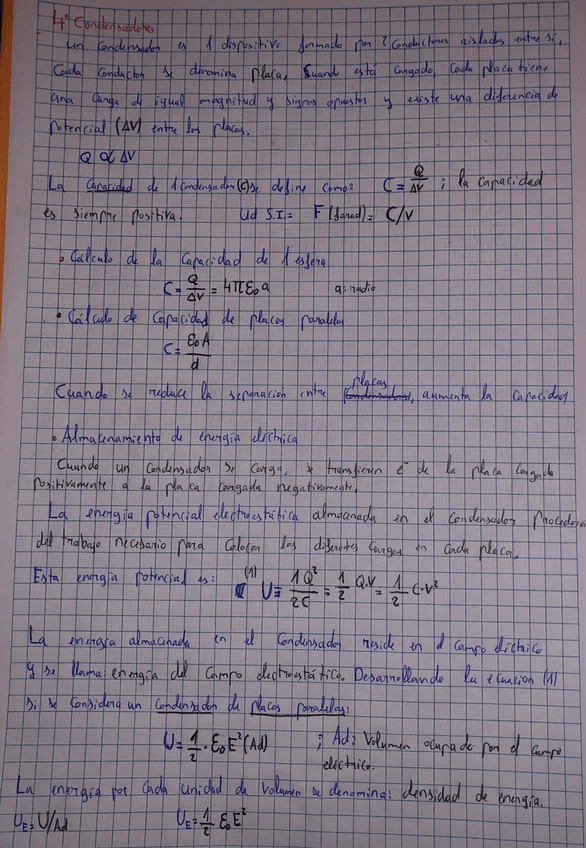 4º Condensadores
Un condensador es 1 dispositivo formado por 2 conductores aislados entre sí,
Cada conductor se denomina placa, Cuando está cargado, cada placa tiene
una carga de igual magnitud y signos opuestos y existe una diferencia de
potencial (ΔV) entre las placas.
Q ∝ ΔV
La Capacidad de 1 condensador (C) se define como: C = Q/ΔV ; la capacidad
es siempre positiva. Ud S.I.= F (farad) = C/V
• Cálculo de la Capacidad de 1 esfera
C = Q/ΔV = 4πε₀a a: radio
• Cálculo de Capacidad de placas paralelas
C = ε₀A/d
Cuando se reduce la separación entre placas, aumenta la capacidad
• Almacenamiento de energía eléctrica
Cuando un condensador se carga, se transfieren e⁻ de la placa cargada
positivamente a la placa cargada negativamente.
La energía potencial electrostática almacenada en el condensador
del trabajo necesario para colocar las cargas en cada placa.
Esta energía potencial es: (1) U = 1/2 Q²/C = 1/2 Q·V = 1/2 C·V²
La energía almacenada en el condensador reside en el campo eléctrico
y se llama: energía del campo electrostático. Desarrollando la ecuación (1)
si se considera un condensador de placas paralelas:
U = 1/2 · ε₀E²(Ad) ; Ad: Volumen ocupado por el campo
eléctrico.
La energía por cada unidad de volumen se denomina: densidad de energía.
U_E = U/Ad U_E = 1/2 ε₀E²